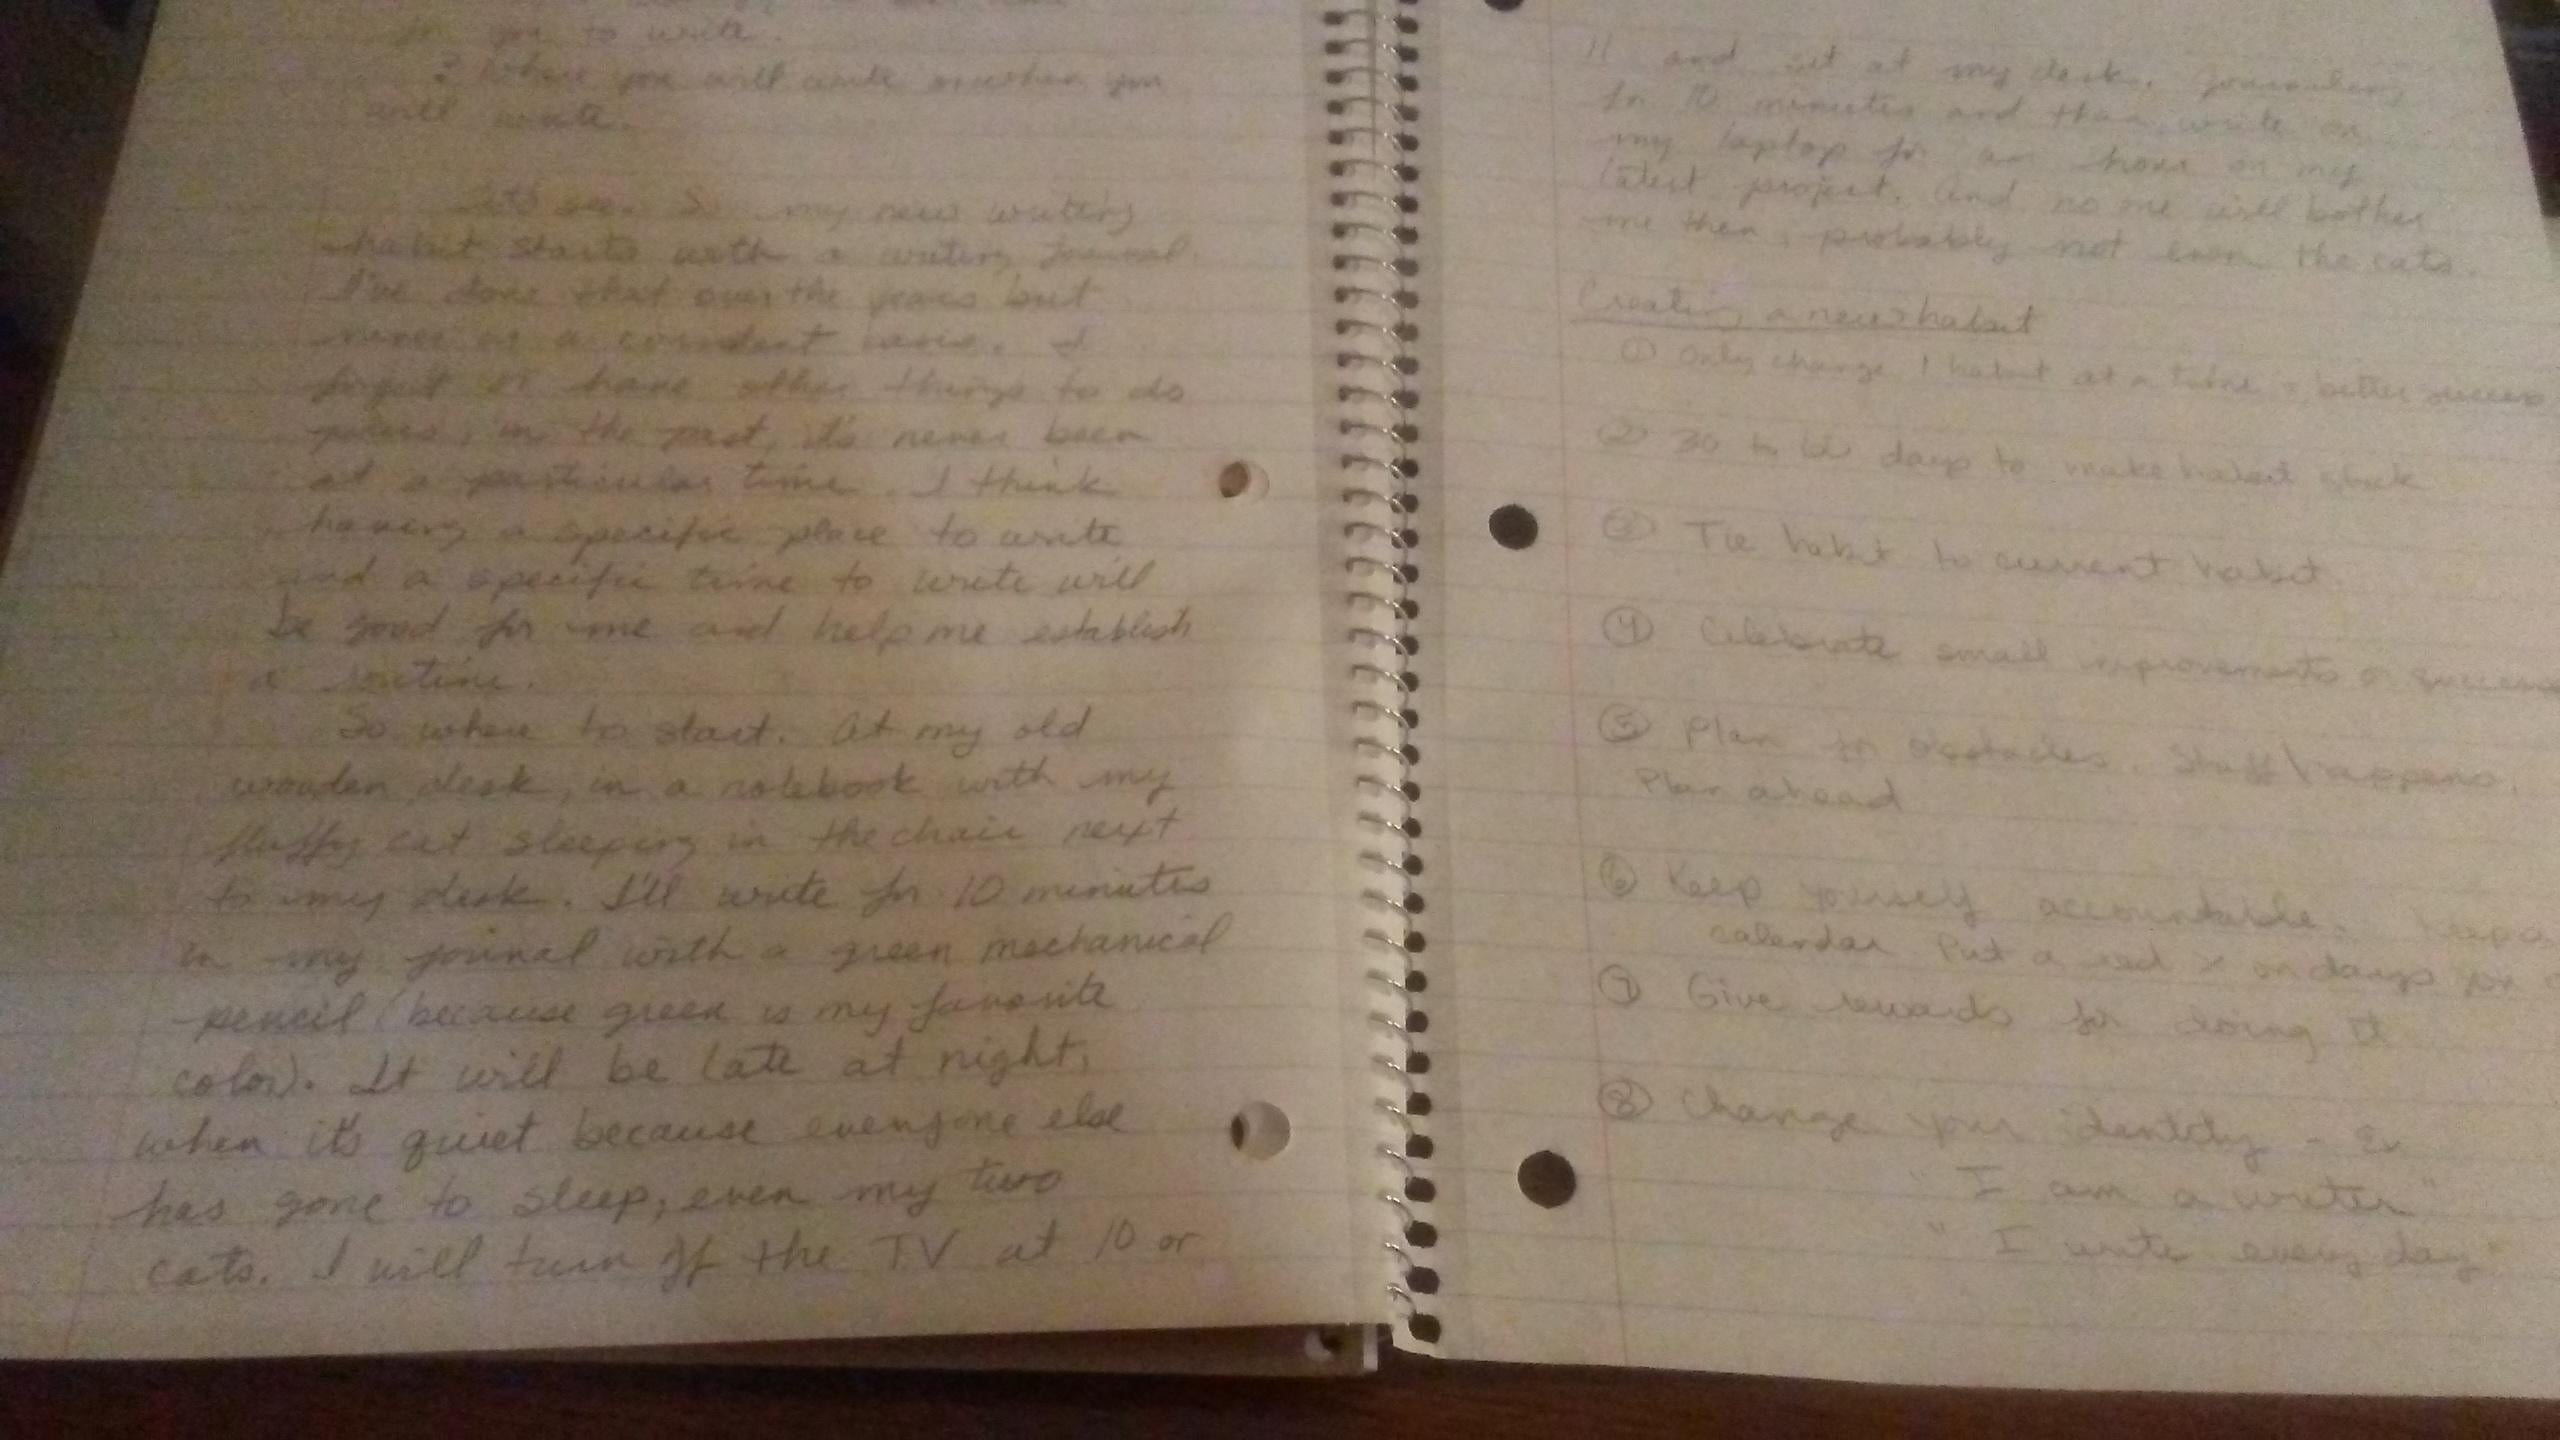 for you to write.
? Where you will write or when you
will write.
Let's see. So my new writing
habit starts with a writing journal.
I've done that over the years but
never on a consistent basis. I
forget or have other things to do
in the past, it's never been
at a particular time. I think
having a specific place to write
and a specific time to write will
be good for me and help me establish
a routine.
So where to start. At my old
wooden desk, in a notebook with my
fluffy cat sleeping in the chair next
to my desk. I'll write for 10 minutes
in my journal with a green mechanical
pencil (because green is my favorite
color). It will be late at night,
when it's quiet because everyone else
has gone to sleep, even my two
cats. I will turn off the TV at 10 or
11 and sit at my desk. Journaling
for 10 minutes and then write on
my laptop for an hour on my
latest project. And no one will bother
me then, probably not even the cats.
Creating a new habit
① Only change 1 habit at a time = better success
② 30 to days to make habit stick
③ Tie habit to current habit
④ Celebrate small improvements or
⑤ Plan for obstacles. Stuff happens.
Plan ahead
⑥ Keep yourself accountable. Keep a
calendar. Put a red X on days you
⑦ Give rewards for doing it
⑧ Change your identity - Ex
"I am a writer"
"I write every day"